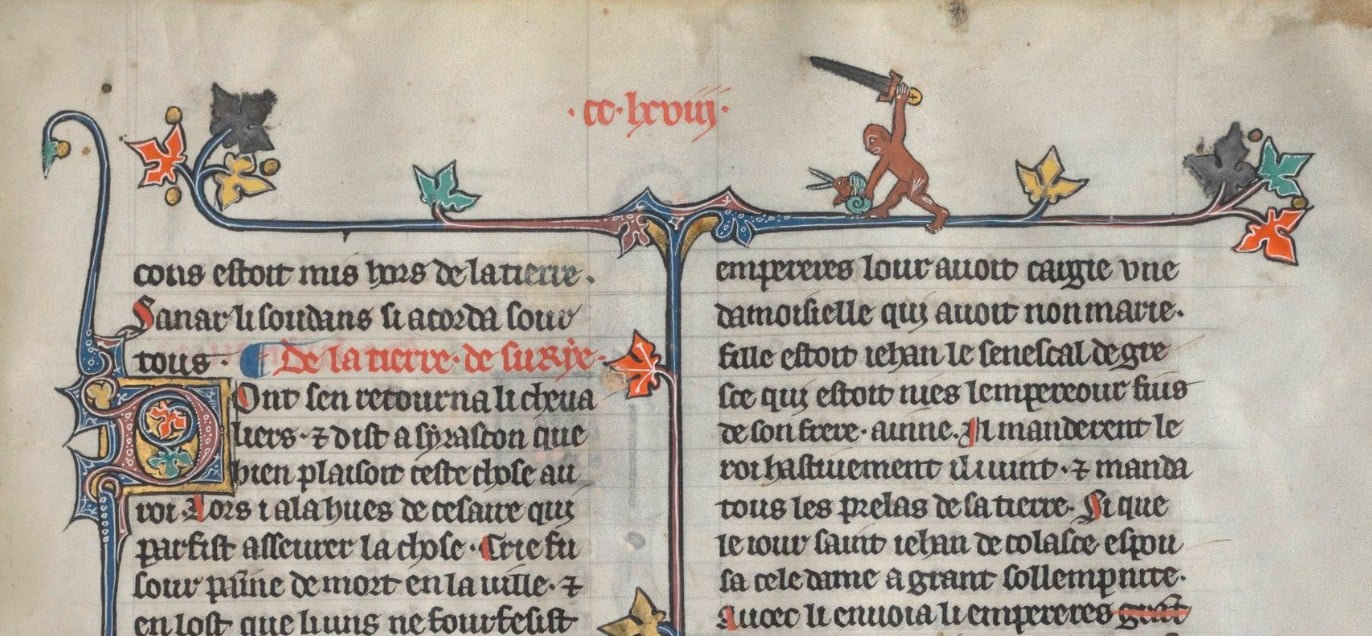 ·cc·lxviij·
cons estoit mis hors de la tierre.
Sanar li soudans si acorda sour
tous· De la tierre· de surẏe·
Dont sen retourna li cheua
liers· ⁊ dist a sẏrascon que
bien plaisoit ceste chose au
roi· Lors i ala hues de cesaire qui
parfist asseurer la chose· Crie fu
sour paine de mort en la uille· ⁊
en lost que li uns ne fourfesist
empereres lour auoit cargie vne
damoisielle qui auoit non marie.
fille estoit iehan le senescal de gre
sce qui estoit nies lempereour fius
de son frere· ainne. Il manderent le
roi hastiuement il i uint· ⁊ manda
tous les prelas de sa tierre· Si que
le iour saint iehan de colasce espou
sa cele dame a grant sollempnite·
Auoec li enuoia li empereres grāt